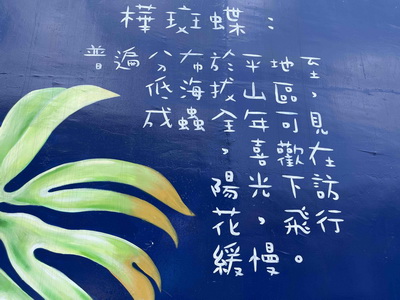 樺斑蝶：
普遍分布於平地區至，
低海拔山區可見
成蟲全年喜歡在
，
陽光下訪
花，飛行
緩慢。